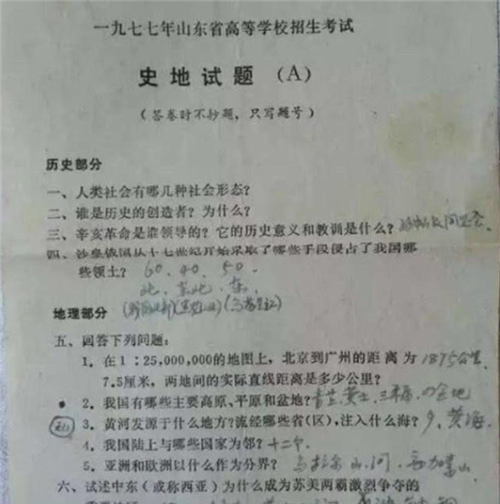 一九七七年山东省高等学校招生考试
史地试题 (A)
(答卷时不抄题，只写题号)
历史部分
一、人类社会有哪几种社会形态？
二、谁是历史的创造者？为什么？
三、辛亥革命是谁领导的？它的历史意义和教训是什么？
四、沙皇俄国从十七世纪开始采取了哪些手段侵占了我国哪
些领土？ 60. 40. 50.
北. 东北. 东.
地理部分
五、回答下列问题：
1．在1:25,000,000的地图上，北京到广州的距离为 1875公里
7.5厘米，两地间的实际直线距离是多少公里？
2．我国有哪些主要高原、平原和盆地？
3．黄河发源于什么地方？流经哪些省(区)，注入什么海？ 9，黄海
4．我国陆上与哪些国家为邻？十二个
5．亚洲和欧洲以什么作为分界？
六、试述中东（或称西亚）为什么成为苏美两霸激烈争夺的